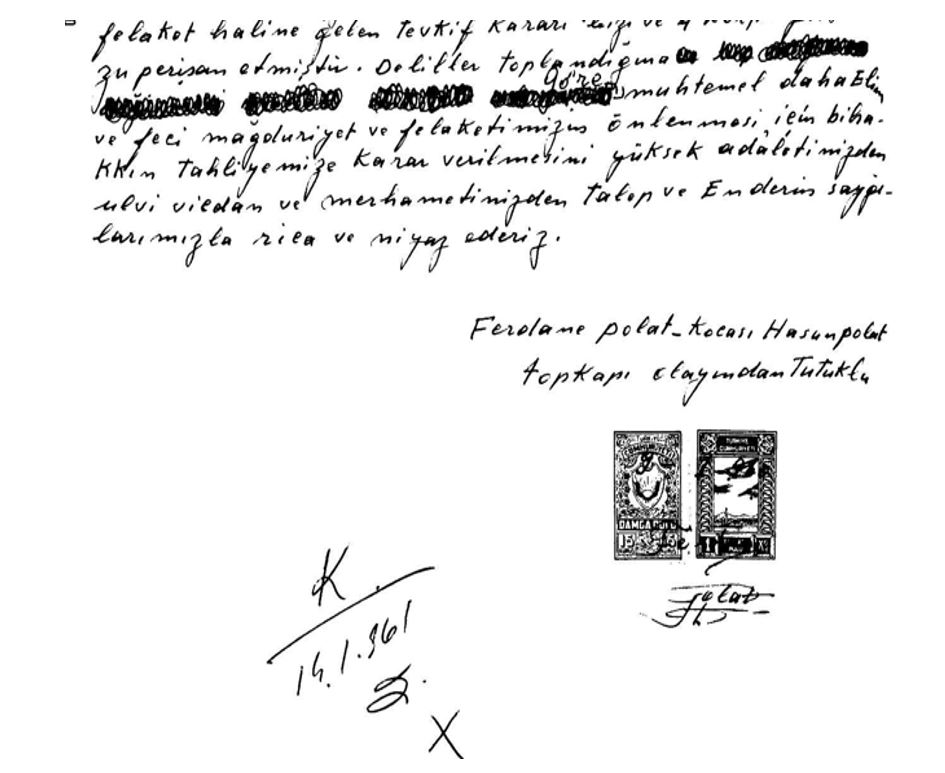 felaket haline gelen Tevkif Kararı bizi ve
zu perişan etmiştir. Deliller toplandığına
göre muhtemel daha Elim
ve feci mağduriyet ve felaketimizin önlenmesi için biha-
kkın Tahliyemize Karar verilmesini yüksek adâletinizden
ulvi vicdan ve merhametinizden Talep ve Enderin saygı-
larımızla rica ve niyaz ederiz.
Ferdane polat-Kocası Hasan polat
topkapı olayından Tutuklu
DAMGA PULU
15
K.
14.1.961
X